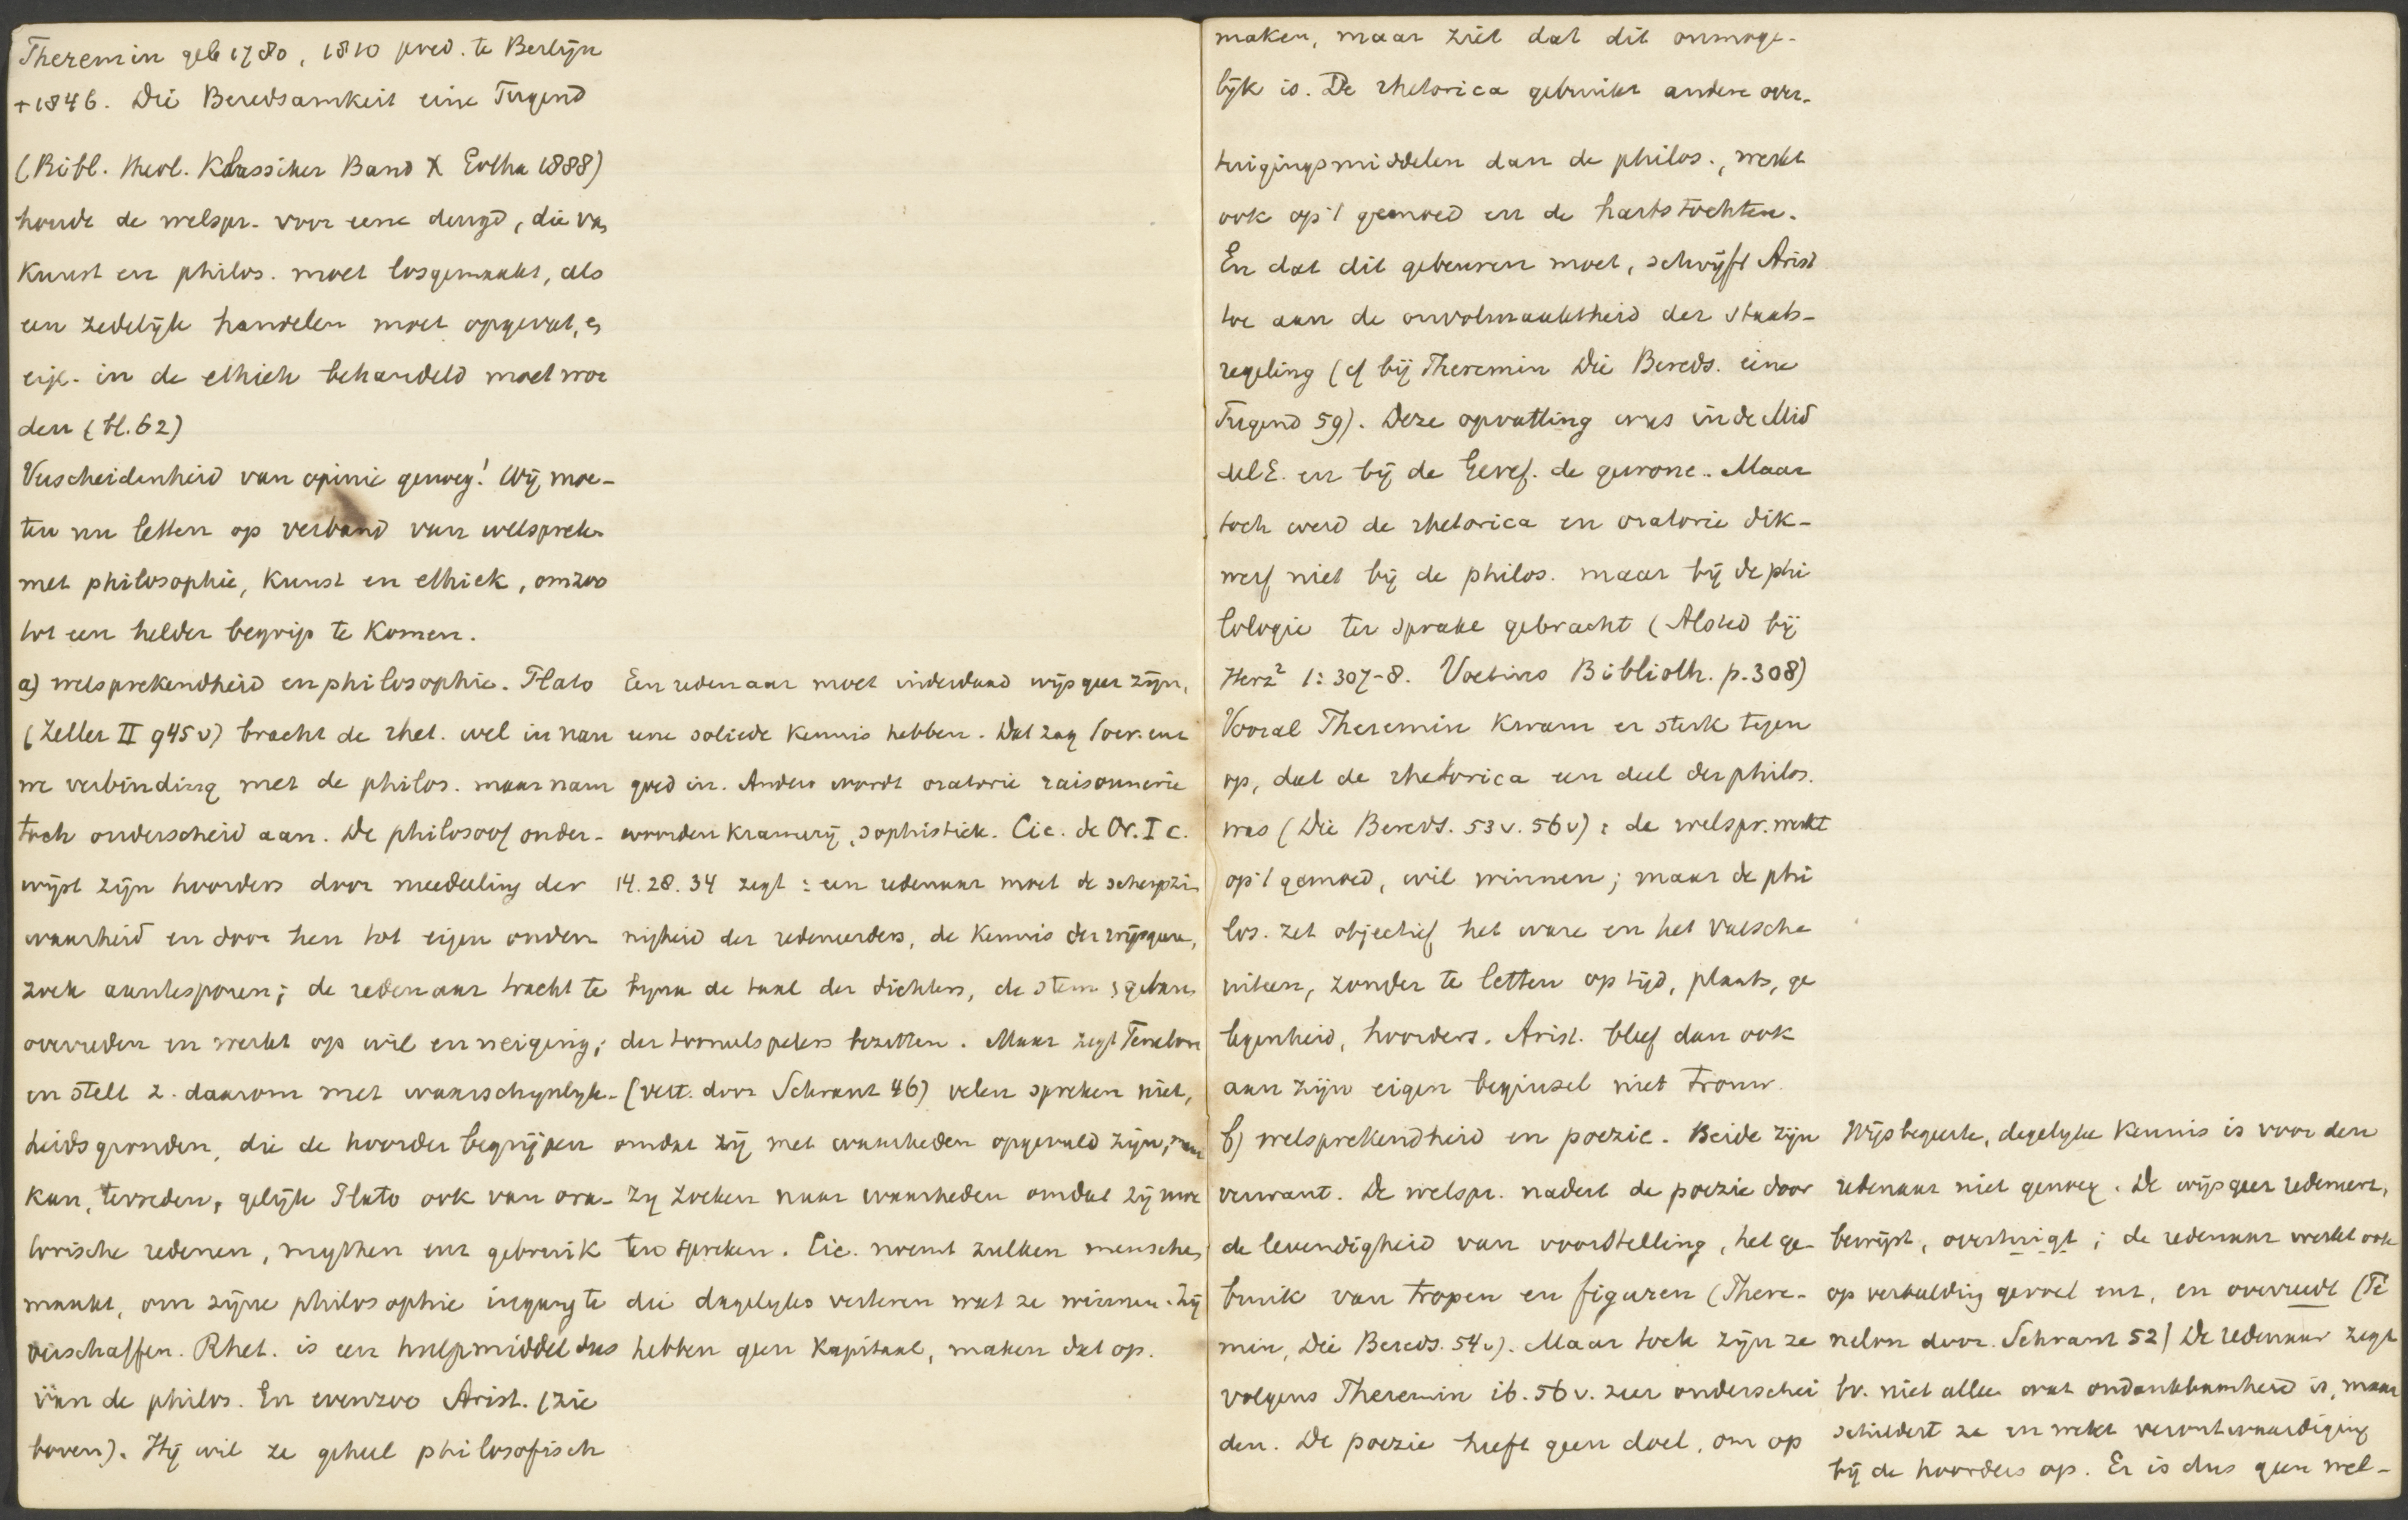 Theremin geb 1780, 1810 pred. te Berlijn
+1846. Die Beredsamkeit eine Tugend
(Bibl. theol. Klassiker Band X Gotha 1888)
houdt de welspr. voor eene deugd, die van
kunst en philos. moet losgemaakt, als
een zedelijk handelen moet opgevat, en
eigl. in de ethiek behandeld moet wor
den (bl. 62)
Verscheidenheid van opinie genoeg! Wij moe-
ten nu letten op verband van welsprek.
met philosophie, kunst en ethiek, om zoo
tot een helder begrip te komen.
a) welsprekendheid en philosophie. Plato
(Zeller II 945 v) bracht de rhet. wel in nau
we verbinding met de philos. maar nam
toch onderscheid aan. De philosoof onder-
wijst zijn hoorders door meedeeling der
waarheid en door hen tot eigen onder
zoek aantesporen; de redenaar tracht te
overreden en werkt op wil en neiging;
en stelt z. daarom met waarschijnlijk-
heidsgronden, die de hoorder begrijpen
kan, tevreden, gelijk Plato ook van ora-
torische redenen, mythen enz gebruik
maakt, om zijne philosophie ingang te
verschaffen. Rhet. is een hulpmiddel dus
van de philos. En evenzoo Arist. (zie
boven). Hij wil ze geheel philosofisch
Een redenaar moet inderdaad wijsgeer zijn,
eene soliede kennis hebben. Dat zag Socr. enz
goed in. Anders wordt oratorie raisonnerie
woordenkramerij, sophistiek. Cic. de Or. I c.
14. 28. 34 zegt: een redenaar moet de scherpzin
nigheid der redeneerders, de kennis der wijsgeeren,
bijna de taal der dichters, de stem & gebaren
der tooneelspelers bezitten. Maar zegt Fenelon
(vert. door Schrant 46) velen spreken niet,
omdat zij met waarheden opgevuld zijn, maar
zij zoeken naar waarheden omdat zij moe
ten spreken. Cic. noemt zulken menschen
die dagelijks verteren wat ze winnen. Zij
hebben geen kapitaal, maken dat op.
maken, maar ziet dat dit onmoge-
lijk is. De rhetorica gebruikt andere over-
tuigingsmiddelen dan de philos., werkt
ook op 't gemoed en de hartstochten.
En dat dit gebeuren moet, schrijft Arist
toe aan de onvolmaaktheid der staats-
regeling (cf bij Theremin Die Bereds. eine
Tugend 59). Deze opvatting was in de Mid
del E. en bij de Geref. de gewone. Maar
toch werd de rhetorica en oratorie dik-
werf niet bij de philos. maar bij de phi
lologie ter sprake gebracht (Alsted bij
Herz² 1: 307-8. Voetius Biblioth. p. 308)
Vooral Theremin kwam er sterk tegen
op, dat de rhetorica een deel der philos.
was (Die Bereds. 53 v. 56 v): de welspr. werkt
op 't gemoed, wil winnen; maar de phi
los. zet objectief het ware en het valsche
uiteen, zonder te letten op tijd, plaats, ge
legenheid, hoorders. Arist. bleef dan ook
aan zijn eigen beginsel niet trouw.
b) welsprekendheid en poezie. Beide zijn
verwant. De welspr. nadert de poezie door
de levendigheid van voorstelling, het ge-
bruik van tropen en figuren (There-
min, Die Bereds. 54 v). Maar toch zijn ze
volgens Theremin ib. 56 v. zeer onderschei
den. De poezie heeft geen doel, om op
Wijsbegeerte, degelijke kennis is voor den
redenaar niet genoeg. De wijsgeer redeneert,
bewijst, overtuigt; de redenaar werkt ook
op verbeelding gevoel enz, en overreedt (Fé
nelon door Schrant 52) De redenaar zegt
bv. niet alleen wat ondankbaarheid is, maar
schildert ze en wekt verontwaardiging
bij de hoorders op. Er is dus geen wel-